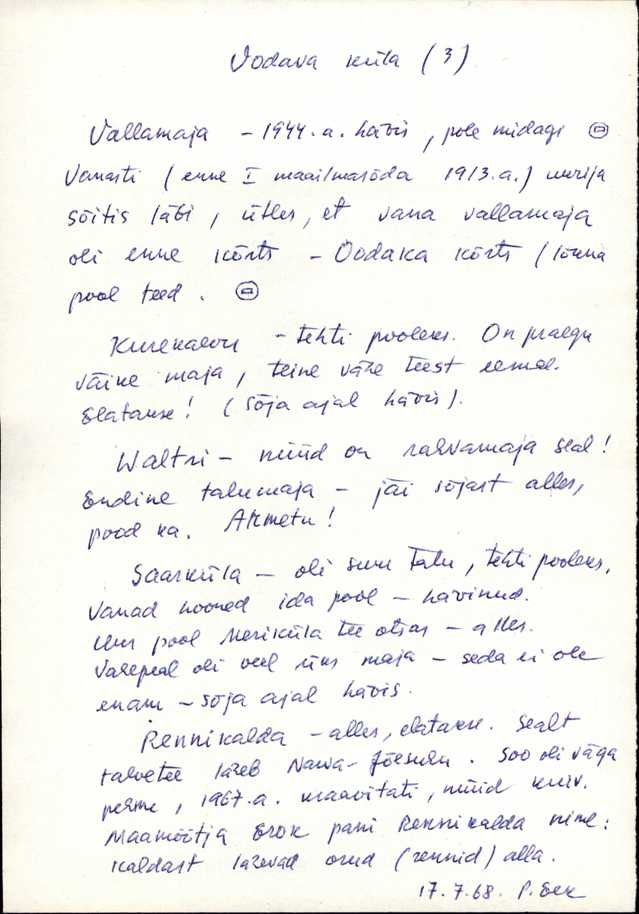 Vodava küla (3)
Vallamaja – 1944. a. hävis, pole midagi
Vanasti (enne I maailmasõda 1913.a.) uurija
sõitis läbi, ütles, et vana vallamaja
oli enne kõrts – Oodaka kõrts (lõuna
pool teed.
– tehti pooleks. On praegu
väike maja, teine väke teest eemal.
Elatakse! (Sõja ajal hävis).
Waltri – nüüd on rahvamaja seal!
Endine talumaja – jäi sõjast alles,
pood ka.
Saarküla – oli suur talu, tehti pooleks,
Vanad hooned ida pool – hävinud.
Uus pool Meriküla tee otsas – alles.
Vasepeal oli veel üks maja – seda ei ole
enam – sõja ajal hävis.
Rennikalda – alles, elatakse. Sealt
talvetee läheb Narva-Jõesuhu. Soo oli väga
pehme, 1967.a. kraavitati, nüüd kuiv.
Maamõõtja Brok pani Rennikalda nime:
kaldast lähevad orud (rennid) alla.
17.7.68. P.